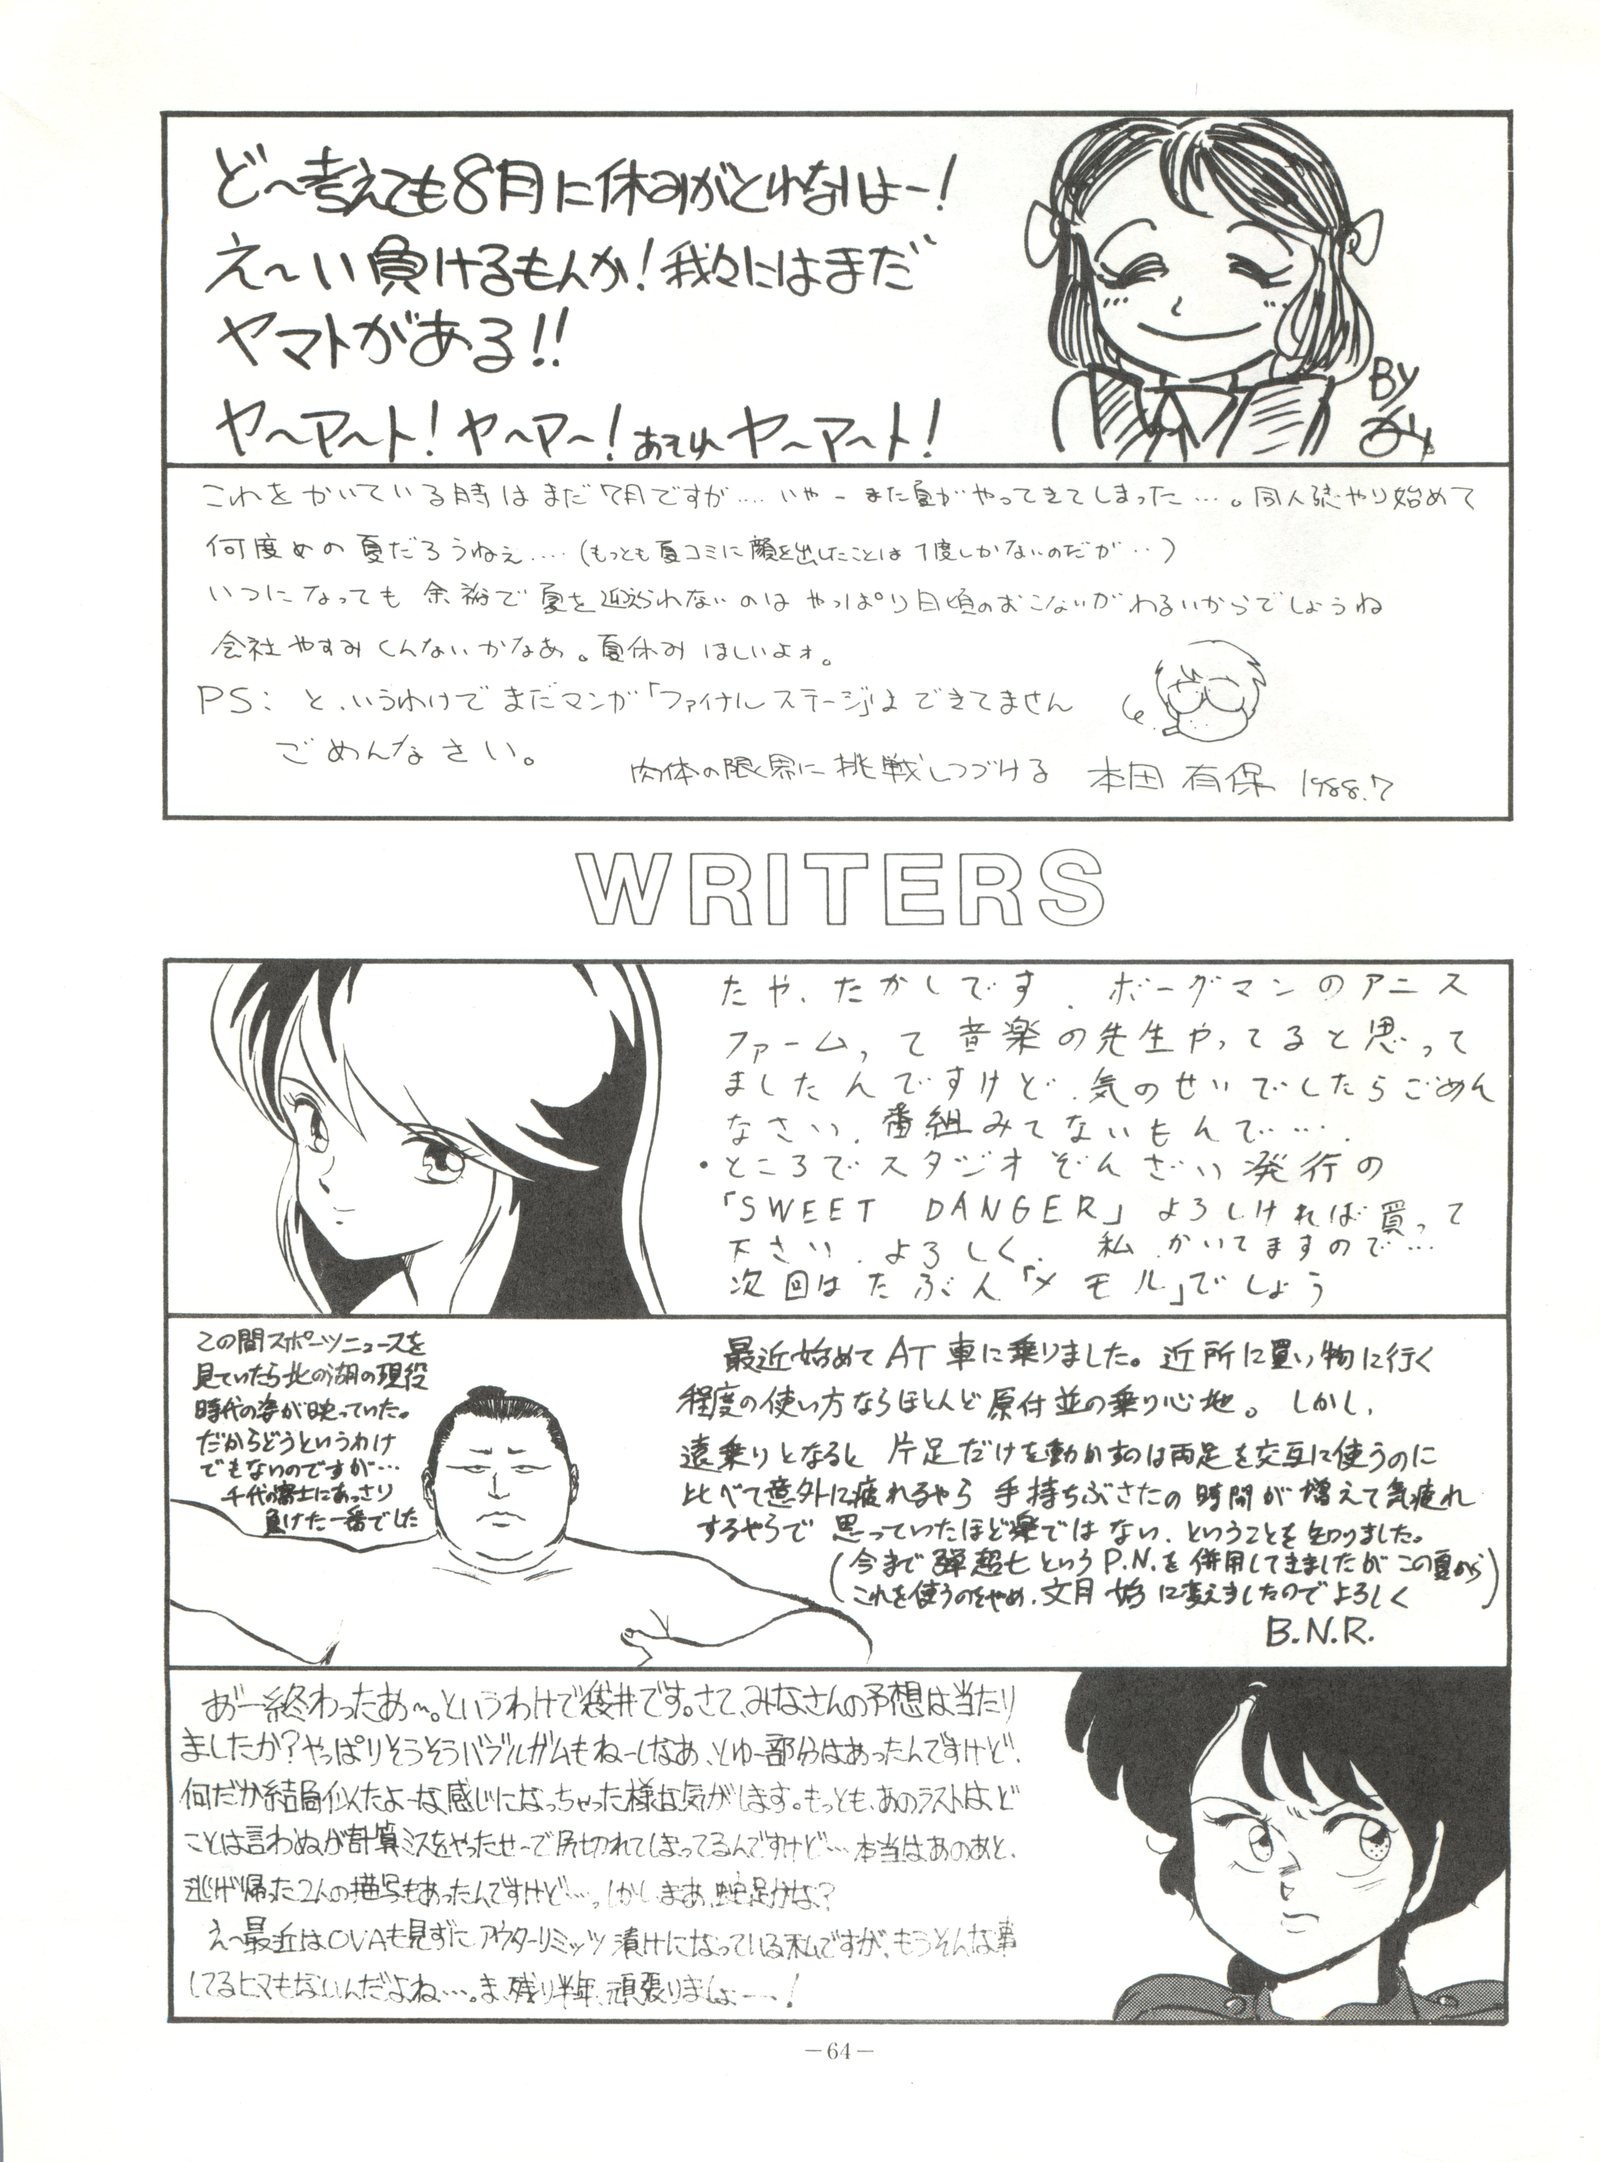 ど〜考えても8月に休みがとれないよー!
え〜い負けるもんか!我々にはまだ
ヤマトがある!!
ヤ〜ア〜ト!ヤ〜マ〜!あそれヤ〜マ〜ト!
BY
これをかいている時はまだ7月ですが‥‥いやーまた夏がやってきてしまった‥‥。同人誌やり始めて
何度めの夏だろうねぇ‥‥(もっとも夏コミに顔を出したことは1度しかないのだが‥)
いつになっても余裕で夏を迎えられないのはやっぱり日頃のおこないがわるいからでしょうね
会社やすみくんないかなあ。夏休みほしいよォ。
PS:と、いうわけでまだマンガ「ファイナルステージ」はできてません
ごめんなさい。
肉体の限界に挑戦しつづける 本田 有保 1988.7
WRITERS
たや、たかしです. ボーグマンのアニス
ファームって音楽の先生やってると思って
ましたんですけど、気のせいでしたらごめん
なさい.番組みてないもんで‥‥.
・ところでスタジオぞんざい発行の
「SWEET DANGER」よろしければ買って
下さい.よろしく. 私.かいてますので‥‥
次回はたぶん「メモル」でしょう
この間スポーツニュースを
見ていたら北の湖の現役
時代の姿が映っていた。
だからどうというわけ
でもないのですが…
千代の富士にあっさり
負けた一番でした
最近始めてAT車に乗りました。近所に買い物に行く
程度の使い方ならほとんど原付並の乗り心地。しかし、
遠乗りとなると片足だけを動かすのは両足を交互に使うのに
比べて意外に疲れるやら手持ちぶさたの時間が増えて気疲れ
するやらで思っていたほど楽ではない、ということを知りました。
(今まで弾超七というP.N.を併用してきましたがこの夏から
これを使うのをやめ、文月 始に変えましたのでよろしく)
B.N.R.
あ゛ー終わったあ〜。というわけで袋井です。さて、みなさんの予想は当たり
ましたか?やっぱりそうそうバブルガムもねーしなあ、とゆー部分はあったんですけど、
何だか結局似たよーな感じになっちゃった様な気がします。もっとも、あのラストは、ど
ことは言わぬが計算ミスをやったせーで尻切れてしまってるんですけど…本当はあのあと、
逃げ帰った2人の描写もあったんですけど…。しかしまあ、蛇足かな?
え〜最近はOVAも見ずにアウターリミッツ漬けになっている私ですが、もうそんな事
してるヒマもないんだよね…。ま、残り半年、頑張りましょー!
－64－